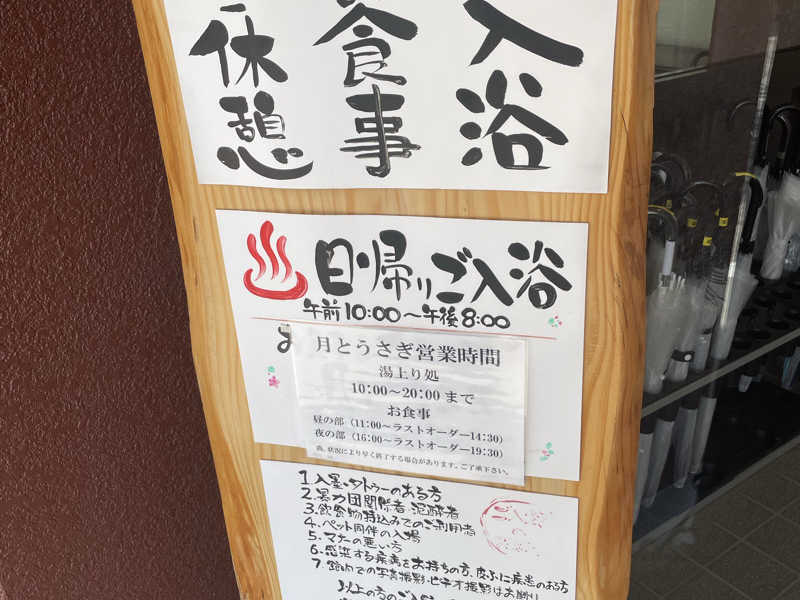 入浴
食事
休憩
日帰りご入浴
午前10:00〜午後8:00
お
月とうさぎ営業時間
湯上り処
10:00〜20:00まで
お食事
昼の部（11:00〜ラストオーダー14:30）
夜の部（16:00〜ラストオーダー19:30）
尚、状況により早く終了する場合があります。ご了承下さい。
1 入墨・タトゥーのある方
2. 暴力団関係者・泥酔者
3. 飲食物持込みでのご利用者
4. ペット同伴の入場
5. マナーの悪い方
6. 感染する疾病をお持ちの方、皮ふに疾患のある方
7 館内での写真撮影・ビデオ撮影はお断り
以上の方のご入